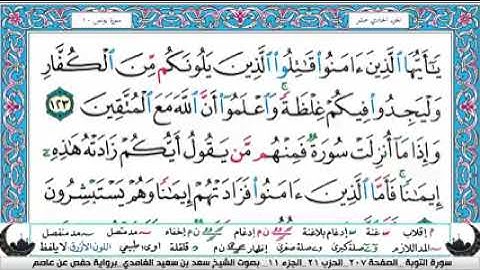 الجزء الحادي عشر
سورة يونس ١٠
يَٰٓأَيُّهَا ٱلَّذِينَ ءَامَنُوا۟ قَٰتِلُوا۟ ٱلَّذِينَ يَلُونَكُم مِّنَ ٱلْكُفَّارِ
وَلْيَجِدُوا۟ فِيكُمْ غِلْظَةً ۚ وَٱعْلَمُوٓا۟ أَنَّ ٱللَّهَ مَعَ ٱلْمُتَّقِينَ ١٢٣
وَإِذَا مَآ أُنزِلَتْ سُورَةٌ فَمِنْهُم مَّن يَقُولُ أَيُّكُمْ زَادَتْهُ هَٰذِهِۦٓ
إِيمَٰنًا ۚ فَأَمَّا ٱلَّذِينَ ءَامَنُوا۟ فَزَادَتْهُمْ إِيمَٰنًا وَهُمْ يَسْتَبْشِرُونَ
م إقلاب غنة إدغام بلاغنة ن م إدغام ن م إخفاء مد متصل مد منفصل
المد اللازم صلة كبرى صلة صغرى إظهار ن قلقلة اوى طبيعي اللون الأزرق لا يلفظ
سورة التوبة _ الصفحة ٢٠٧ _الحزب ٢١ _الجزء ١١ _ بصوت الشيخ سعد بن سعيد الغامدي _برواية حفص عن عاصم